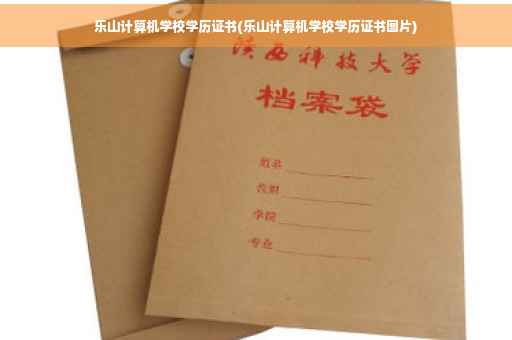 乐山计算机学校学历证书(乐山计算机学校学历证书图片)
陕西科技大学
档案袋
姓名
学院
专业